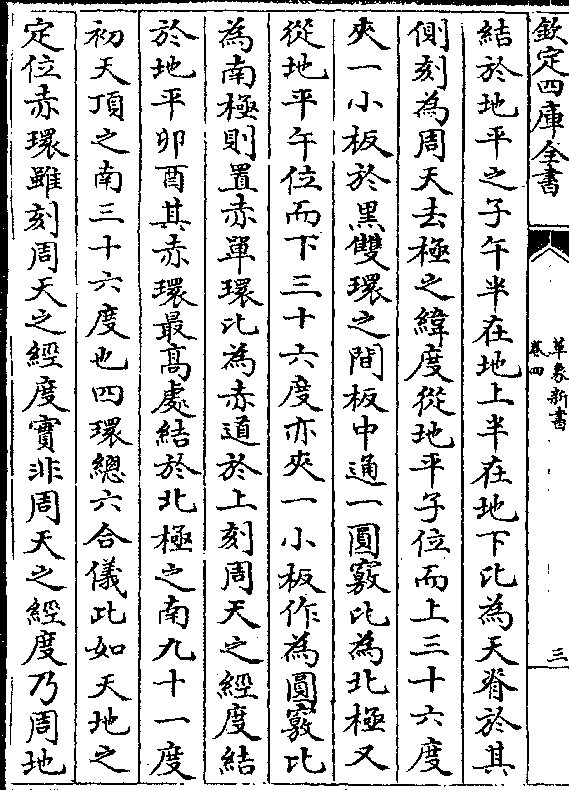 欽定四庫全書
革象新書
卷四
三
結於地平之子午半在地上半在地下比為天脊於其
側刻為周天去極之緯度從地平子位而上三十六度
夾一小板於黑雙環之間板中通一圓竅比為北極又
從地平午位而下三十六度亦夾一小板作為圓竅比
為南極則置赤單環比為赤道於上刻周天之經度結
於地平卯酉其赤環最高處結於北極之南九十一度
初天頂之南三十六度也四環總六合儀比如天地之
定位赤環雖刻周天之經度實非周天之經度乃周地